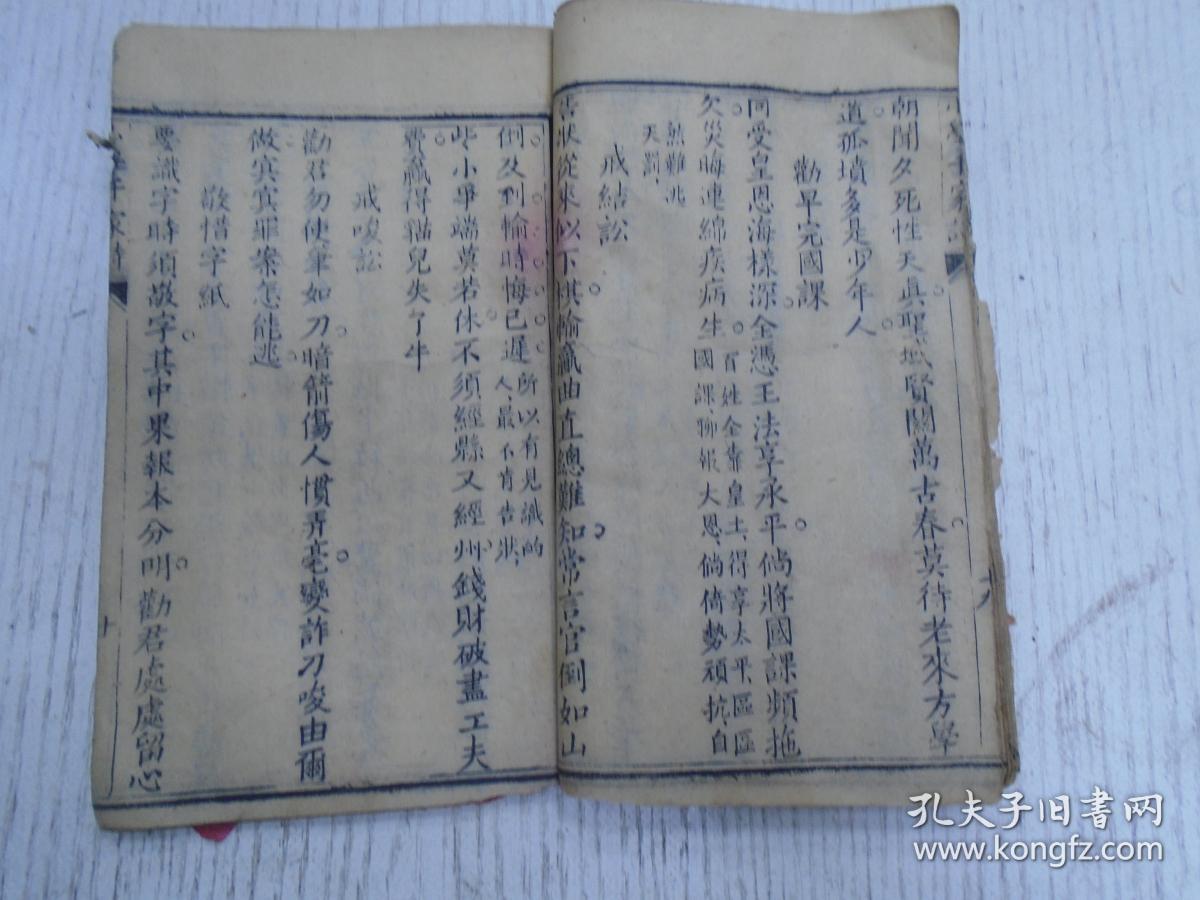 朝聞夕死性天真聖域賢關萬古春莫待老來方學
道孤墳多是少年人
勸早完國課
同受皇恩海樣深全憑王法享承平倘將國課頻拖
欠災晦連綿疾病生
百姓全靠皇土、得享太平、區區
國課、聊報大恩、倘倚勢頑抗、自
然難逃
天罰、
戒結訟
告狀從來似下棋輸贏曲直總難知常言官倒如山
倒及到輸時悔已遲
所以有見識的
人、最不肯告狀、
些小爭端莫若休不須經縣又經州錢財破盡工夫
費贏得貓兒失了牛
戒唆訟
勸君勿使筆如刀暗箭傷人慣弄毫變詐刁唆由爾
做冥冥罪案怎能逃
敬惜字紙
要識字時須敬字其中果報本分明勸君處處留心
孔夫子旧書网
www.kongfz.com